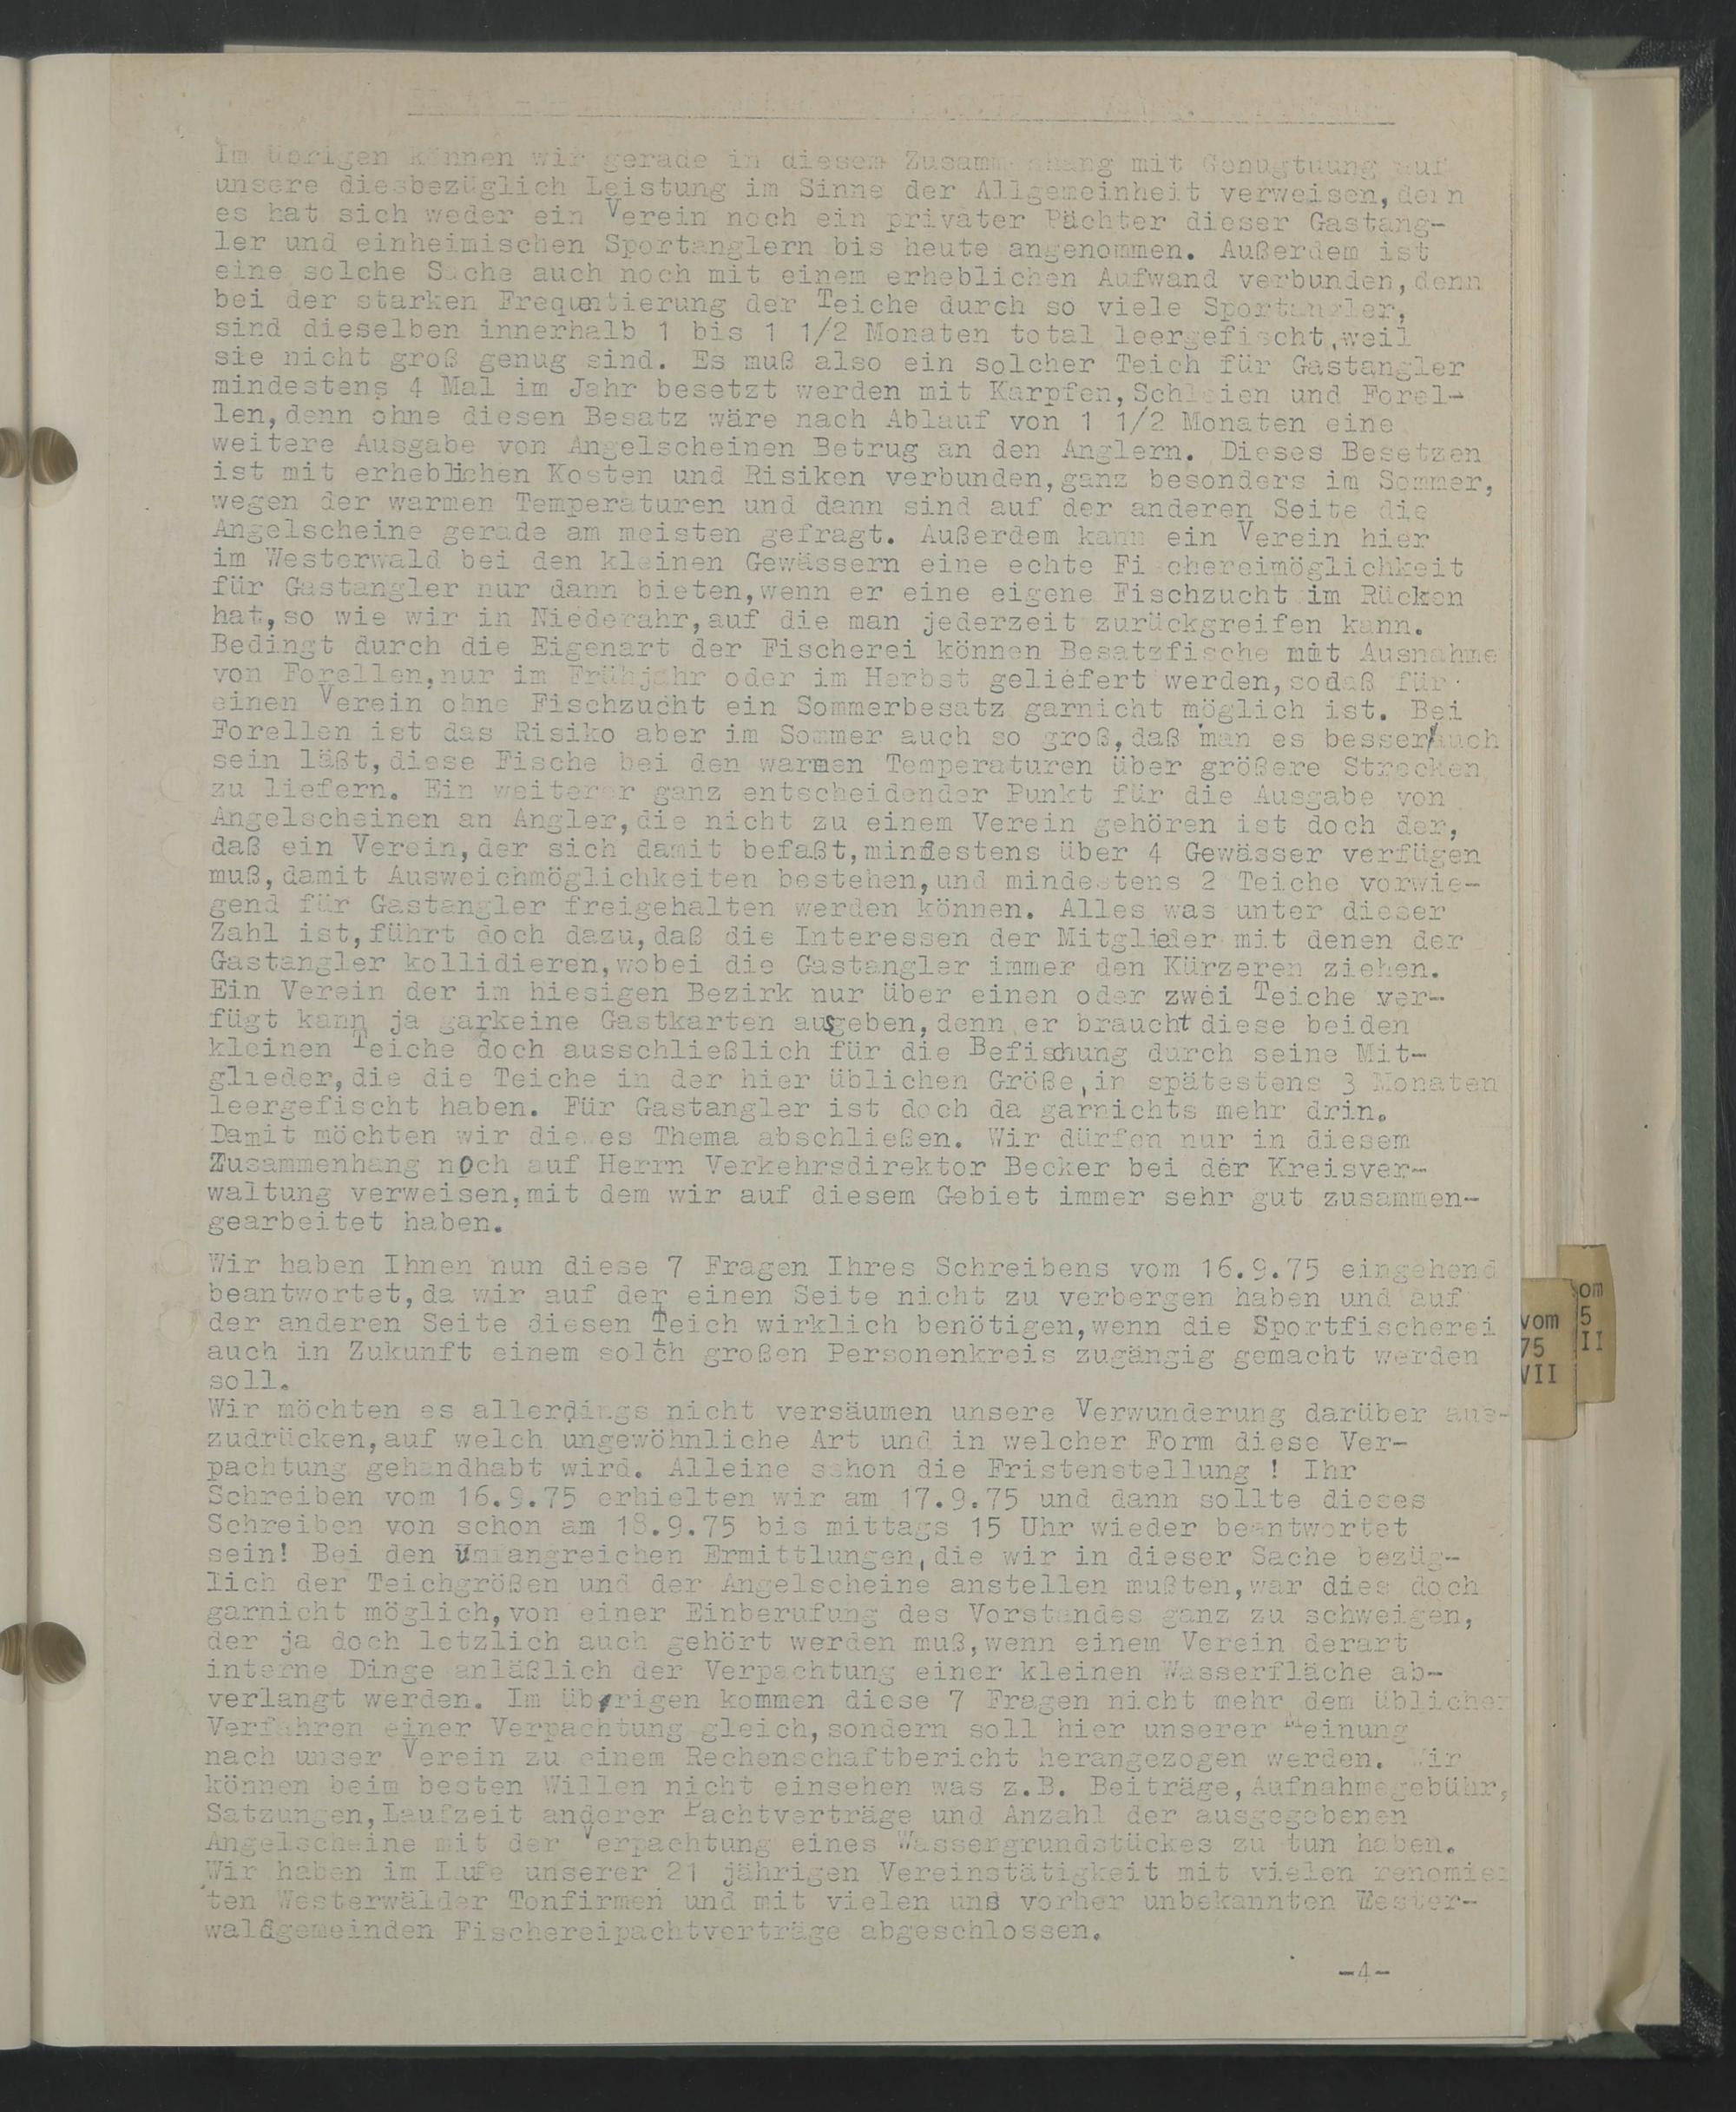 Im übrigen können wir gerade in diesem Zusammenhang mit Genugtuung auf
unsere diesbezüglich Leistung im Sinne der Allgemeinheit verweisen, denn
es hat sich weder ein Verein noch ein privater Pächter dieser Gastang-
ler und einheimischen Sportanglern bis heute angenommen. Außerdem ist
eine solche Sache auch noch mit einem erheblichen Aufwand verbunden, denn
bei der starken Frequentierung der Teiche durch so viele Sportangler,
sind dieselben innerhalb 1 bis 1 1/2 Monaten total leergefischt, weil
sie nicht groß genug sind. Es muß also ein solcher Teich für Gastangler
mindestens 4 Mal im Jahr besetzt werden mit Karpfen, Schleien und Forel-
len, denn ohne diesen Besatz wäre nach Ablauf von 1 1/2 Monaten eine
weitere Ausgabe von Angelscheinen Betrug an den Anglern. Dieses Besetzen
ist mit erheblichen Kosten und Risiken verbunden, ganz besonders im Sommer,
wegen der warmen Temperaturen und dann sind auf der anderen Seite die
Angelscheine gerade am meisten gefragt. Außerdem kann ein Verein hier
im Westerwald bei den kleinen Gewässern eine echte Fischereimöglichkeit
für Gastangler nur dann bieten, wenn er eine eigene Fischzucht im Rücken
hat, so wie wir in Niederahr, auf die man jederzeit zurückgreifen kann.
Bedingt durch die Eigenart der Fischerei können Besatzfische mit Ausnahme
von Forellen, nur im Frühjahr oder im Herbst geliefert werden, sodaß für
einen Verein ohne Fischzucht ein Sommerbesatz garnicht möglich ist. Bei
Forellen ist das Risiko aber im Sommer auch so groß, daß man es besser auch
sein läßt, diese Fische bei den warmen Temperaturen über größere Strecken
zu liefern. Ein weiterer ganz entscheidender Punkt für die Ausgabe von
Angelscheinen an Angler, die nicht zu einem Verein gehören ist doch der,
daß ein Verein, der sich damit befaßt, mindestens über 4 Gewässer verfügen
muß, damit Ausweichmöglichkeiten bestehen, und mindestens 2 Teiche vorwie-
gend für Gastangler freigehalten werden können. Alles was unter dieser
Zahl ist, führt doch dazu, daß die Interessen der Mitglieder mit denen der
Gastangler kollidieren, wobei die Gastangler immer den Kürzeren ziehen.
Ein Verein der im hiesigen Bezirk nur über einen oder zwei Teiche ver-
fügt kann ja garkeine Gastkarten ausgeben, denn er braucht diese beiden
kleinen Teiche doch ausschließlich für die Befischung durch seine Mit-
glieder, die die Teiche in der hier üblichen Größe, in spätestens 3 Monaten
leergefischt haben. Für Gastangler ist doch da garnichts mehr drin.
Damit möchten wir dieses Thema abschließen. Wir dürfen nur in diesem
Zusammenhang noch auf Herrn Verkehrsdirektor Becker bei der Kreisver-
waltung verweisen, mit dem wir auf diesem Gebiet immer sehr gut zusammen-
gearbeitet haben.
Wir haben Ihnen nun diese 7 Fragen Ihres Schreibens vom 16.9.75 eingehend
beantwortet, da wir auf der einen Seite nicht zu verbergen haben und auf
der anderen Seite diesen Teich wirklich benötigen, wenn die Sportfischerei
auch in Zukunft einem solch großen Personenkreis zugängig gemacht werden
soll.
Wir möchten es allerdings nicht versäumen unsere Verwunderung darüber aus-
zudrücken, auf welch ungewöhnliche Art und in welcher Form diese Ver-
pachtung gehandhabt wird. Alleine schon die Fristenstellung ! Ihr
Schreiben vom 16.9.75 erhielten wir am 17.9.75 und dann sollte dieses
Schreiben von schon am 18.9.75 bis mittags 15 Uhr wieder beantwortet
sein! Bei den Umfangreichen Ermittlungen, die wir in dieser Sache bezüg-
lich der Teichgrößen und der Angelscheine anstellen mußten, war dies doch
garnicht möglich, von einer Einberufung des Vorstandes ganz zu schweigen,
der ja doch letzlich auch gehört werden muß, wenn einem Verein derart
interne Dinge anläßlich der Verpachtung einer kleinen Wasserfläche ab-
verlangt werden. Im übrigen kommen diese 7 Fragen nicht mehr dem üblichen
Verfahren einer Verpachtung gleich, sondern soll hier unserer Meinung
nach unser Verein zu einem Rechenschaftbericht herangezogen werden. Wir
können beim besten Willen nicht einsehen was z.B. Beiträge, Aufnahmegebühr,
Satzungen, Laufzeit anderer Pachtverträge und Anzahl der ausgegebenen
Angelscheine mit der Verpachtung eines Wassergrundstückes zu tun haben.
Wir haben im Lufe unserer 21 jährigen Vereinstätigkeit mit vielen renomier
ten Westerwälder Tonfirmen und mit vielen uns vorher unbekannten Wester-
waldgemeinden Fischereipachtverträge abgeschlossen.
-4-
vom
75
VII
om
5
II